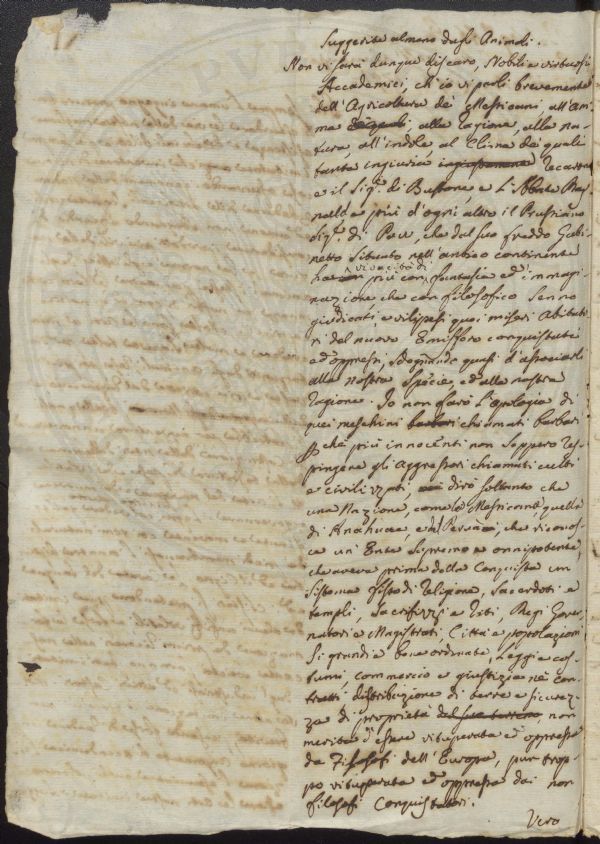 suggerite almeno dagli Animali.
Non vi sarà dunque discaro, Nobili e virtuosi
Accademici, ch'io vi parli brevemente
dell'Agricoltura dei Messicani, all'Ani-
ma, alla ragione, alla na-
tura, all'indole, al Clima dei quali
tante ingiurie recarono
e il Sig.r di Buffone, e l'Abbate Ray-
nald e più d'ogni altro il Prussiano
Sig.r di Paw, che dal suo freddo Gabi-
netto situato nell'antico continente
ha più con vivacità di fantasia ed immagi-
nazione che con filosofico senno
giudicati, e vilipesi quei miseri Abitato-
ri del nuovo Emisfero conquistati
ed oppressi, sdegnando quasi d'associarli
alla nostra specie, ed alla nostra
ragione. Io non farò l'Apologia di
quei meschini barbari chiamati barbari
perchè più innocenti non seppero res-
pingere gli Aggressori chiamati culti
e civilizzati, dirò soltanto che
una Nazione, come la Messicana, quella
di Anahuac, e di Perù, che riconos-
ce un'Ente Supremo e onnipotente,
che aveva prima della Conquista un
sistema fisso di religione, Sacerdoti e
templi, Sacrifizzi e riti, Regi Gover-
natori e Magistrati, Città e popolazioni
sì grandi e bene ordinate, Leggi e cos-
tumi, commercio e giustizia ne' con-
tratti distribuzione di terre e sicurez-
za di proprietà del suo terreno, non
merita d'essere vituperata ed oppressa
da Filosofi dell'Europa, pur trop-
po vituperata ed oppressa dai non
filosofi Conquistatori.
Vero